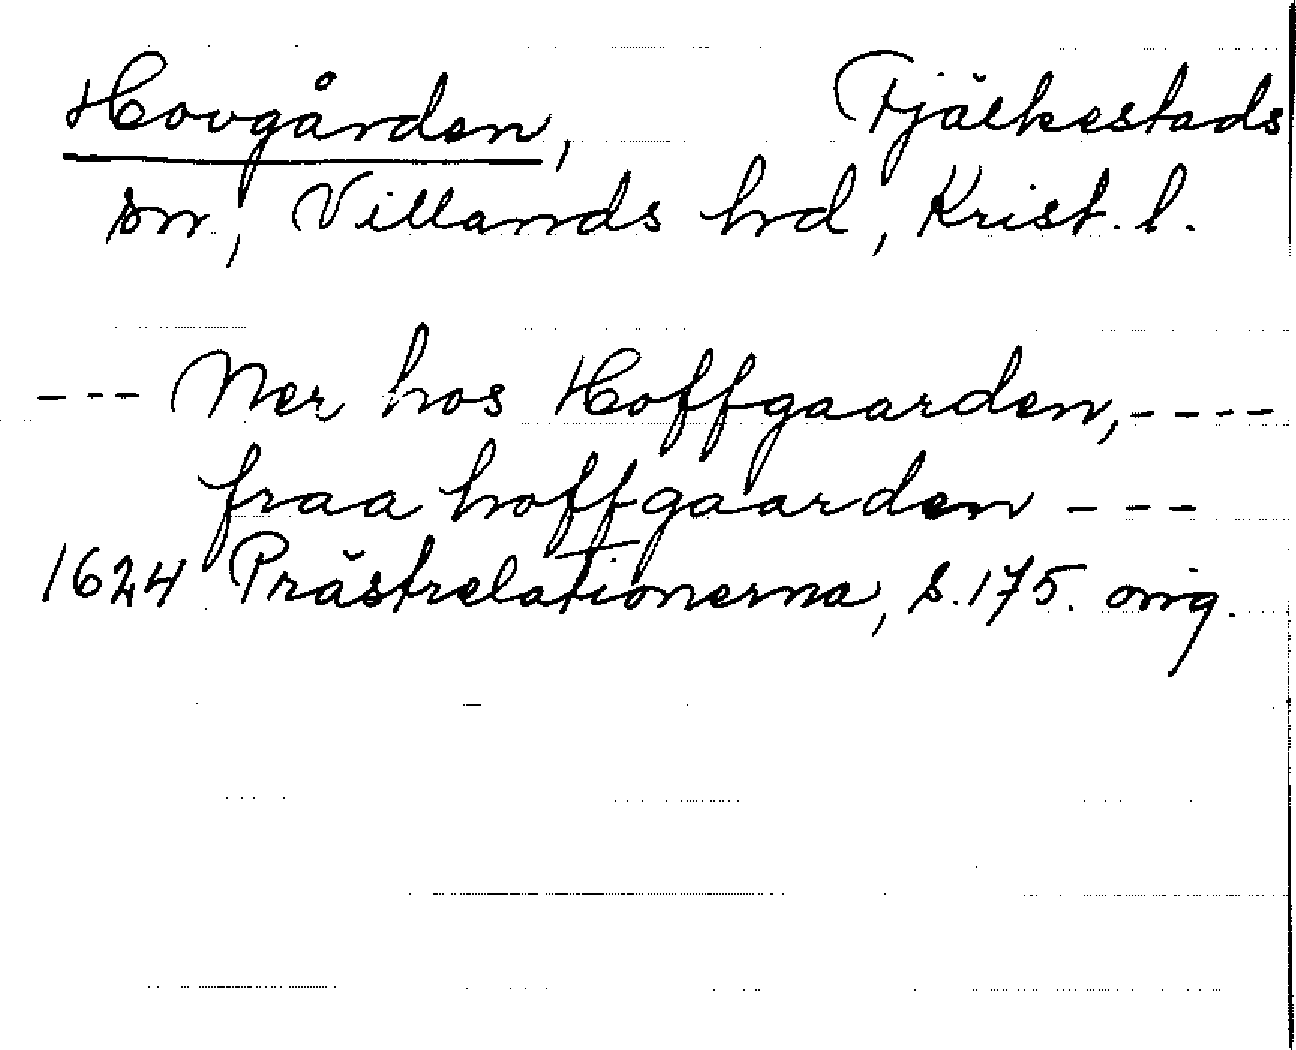 Hovgården, Fjälkestads
sn, Villands hrd, Krist. l.
--- Ner hos Hoffgaarden, ----
fraa hoffgaarden ---
1624 Prästrelationerna, s. 175. orig.